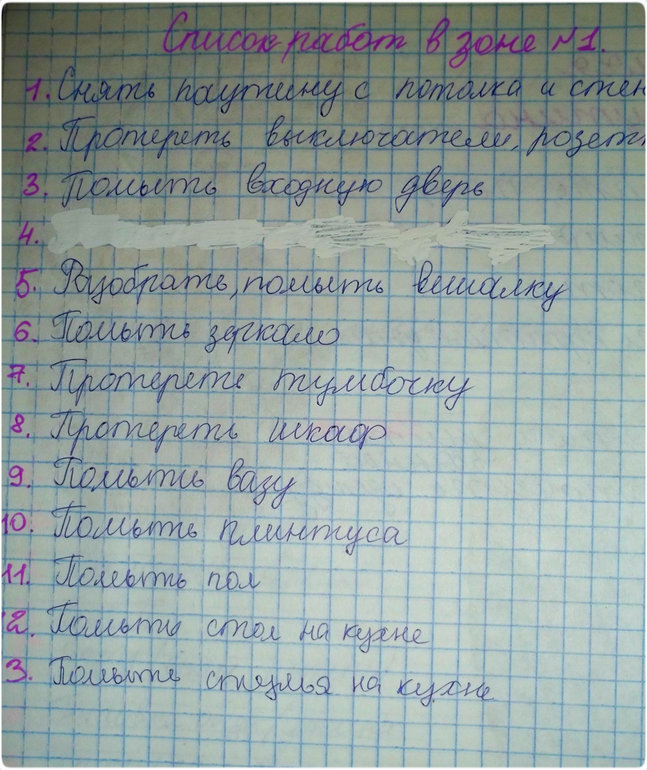 Список работ в зоне №1.
1. Снять паутину с потолка и стен
2. Протереть выключатели, розетк
3. Помыть входную дверь
4.
5. Разобрать, помыть вешалку
6. Помыть зеркало
7. Протереть тумбочку
8. Протереть шкаф
9. Помыть вазу
10. Помыть плинтуса
11. Помыть пол
2. Помыть стол на кухне
3. Помыть стулья на кухне